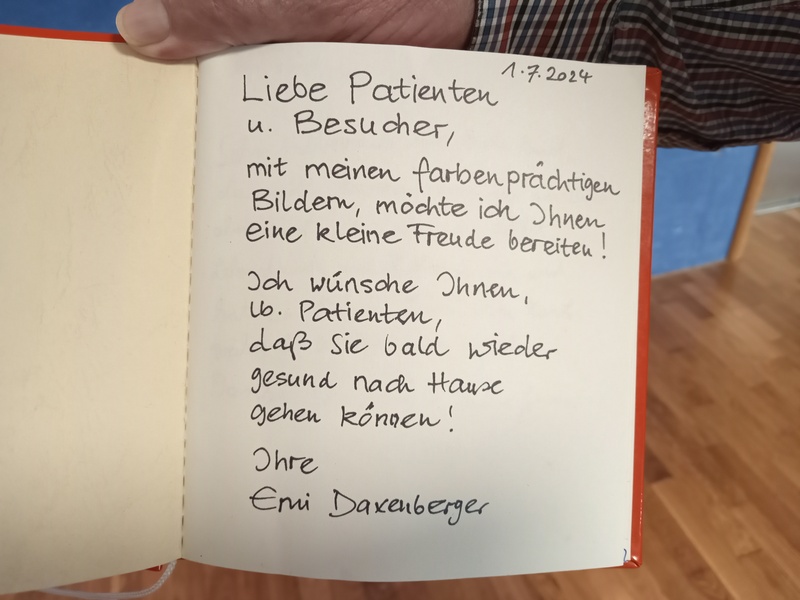 1.7.2024
Liebe Patienten
u. Besucher,
mit meinen farbenprächtigen
Bildern, möchte ich Ihnen
eine kleine Freude bereiten!
Ich wünsche Ihnen,
lb. Patienten,
daß Sie bald wieder
gesund nach Hause
gehen können!
Ihre
Erni Daxenberger